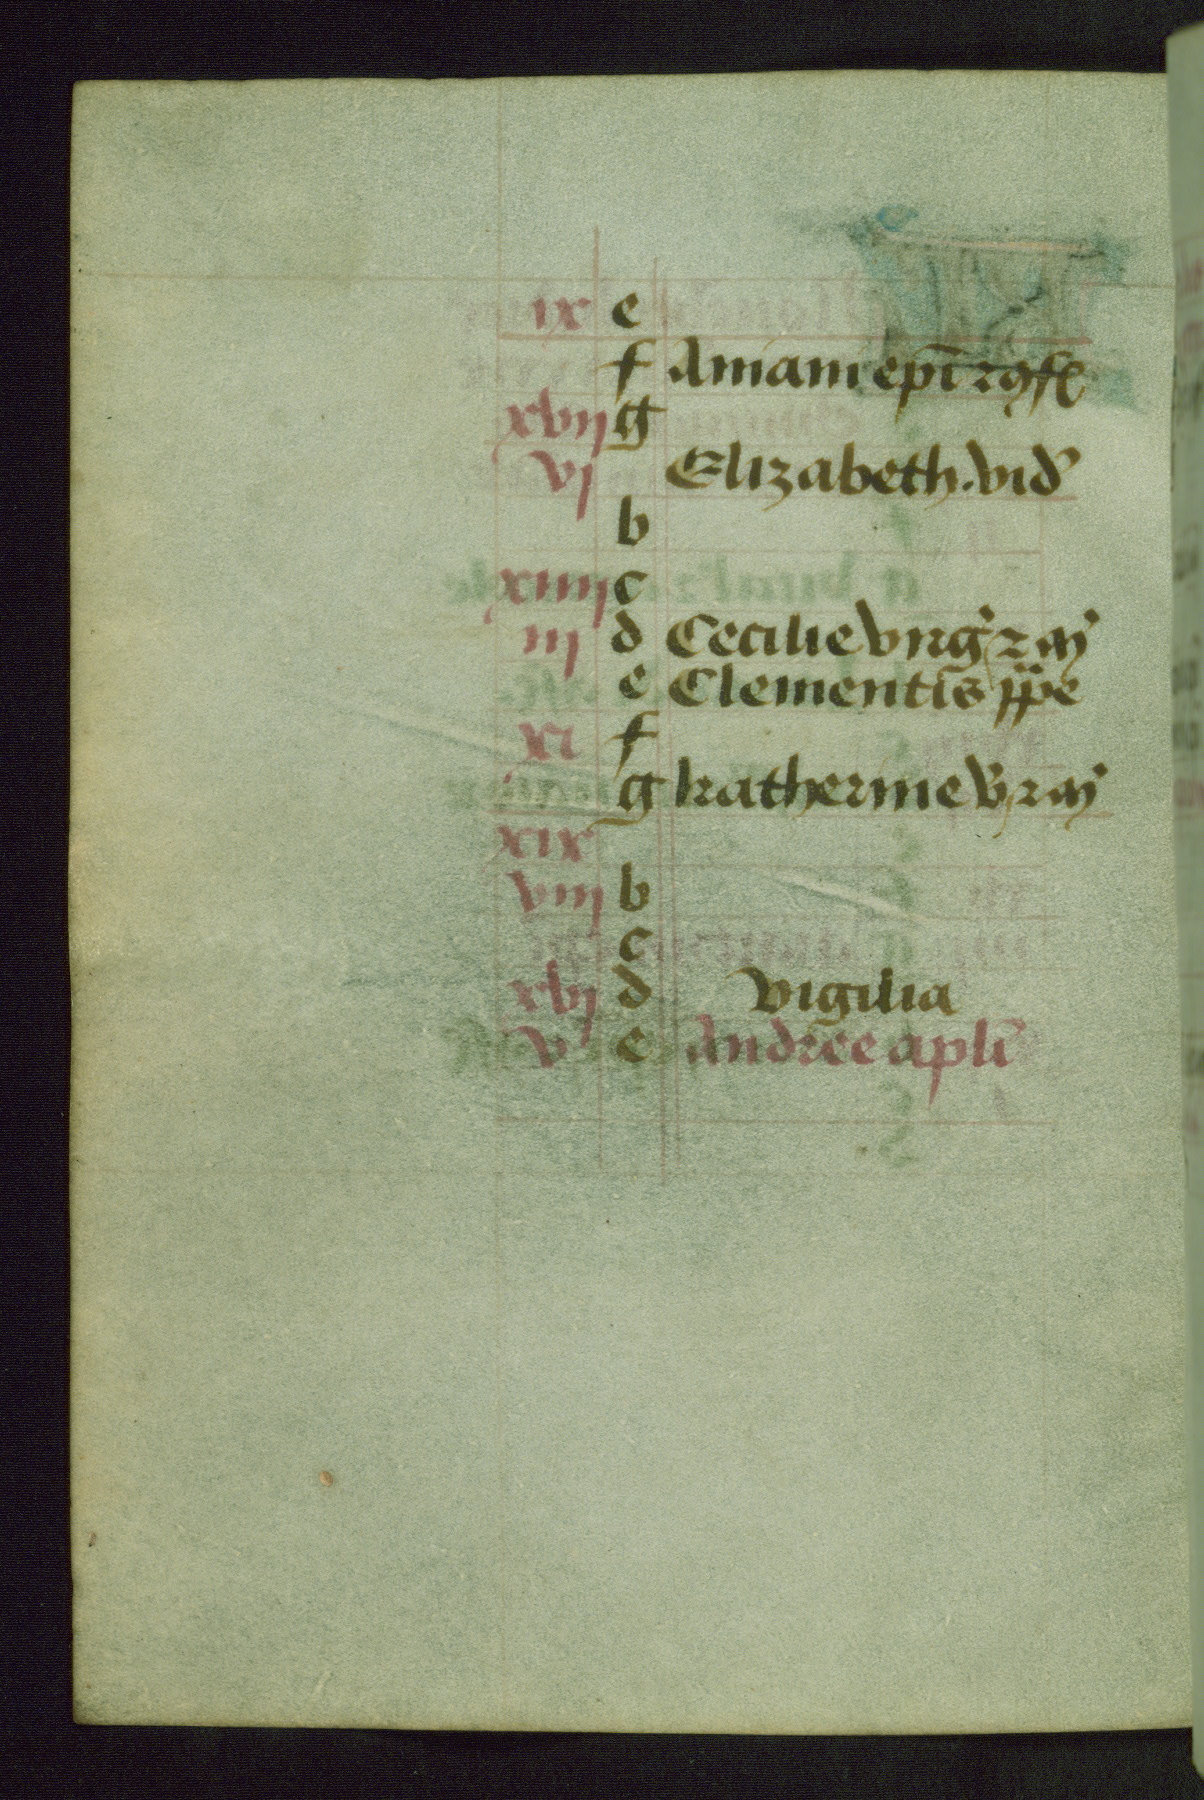 ix e
f Aniani epī ⁊ ꝯfeſ
xvij g
vj Elizabeth . vid᾽
b
xiiij c
iij d Cecilie virg᾽ ⁊ m᾽
e Clementis pp̄e
xi f
g katherine v᾽ ⁊ m᾽
xix
viij b
c
xvj d vigilia
v e Andree apl̄i